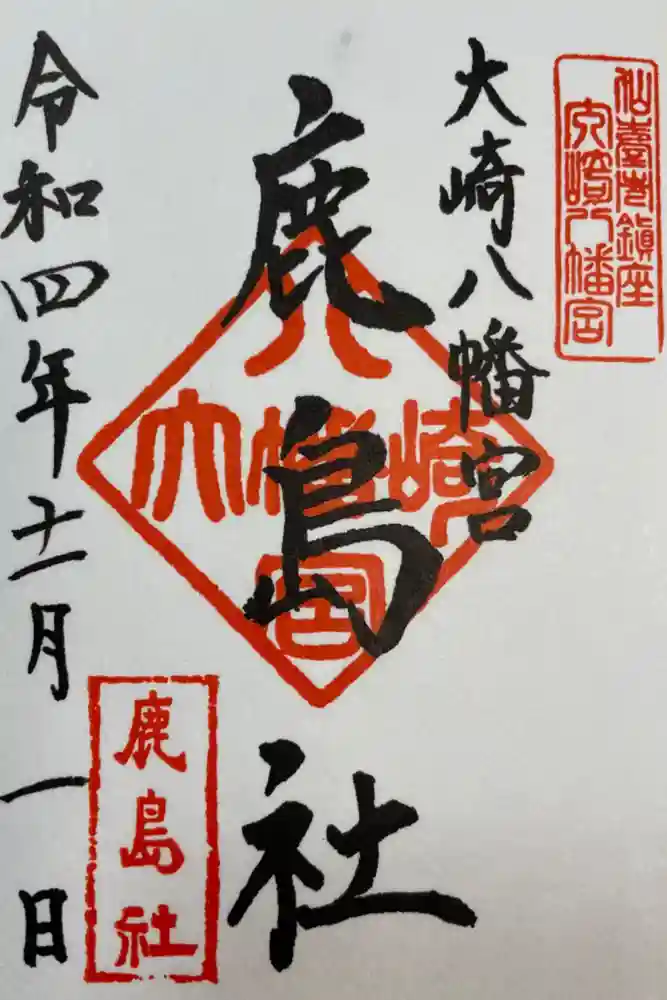 仙臺市鎮座
大崎八幡宮
大崎八幡宮
鹿島社
大崎八幡宮
令和四年十二月一日
鹿島社